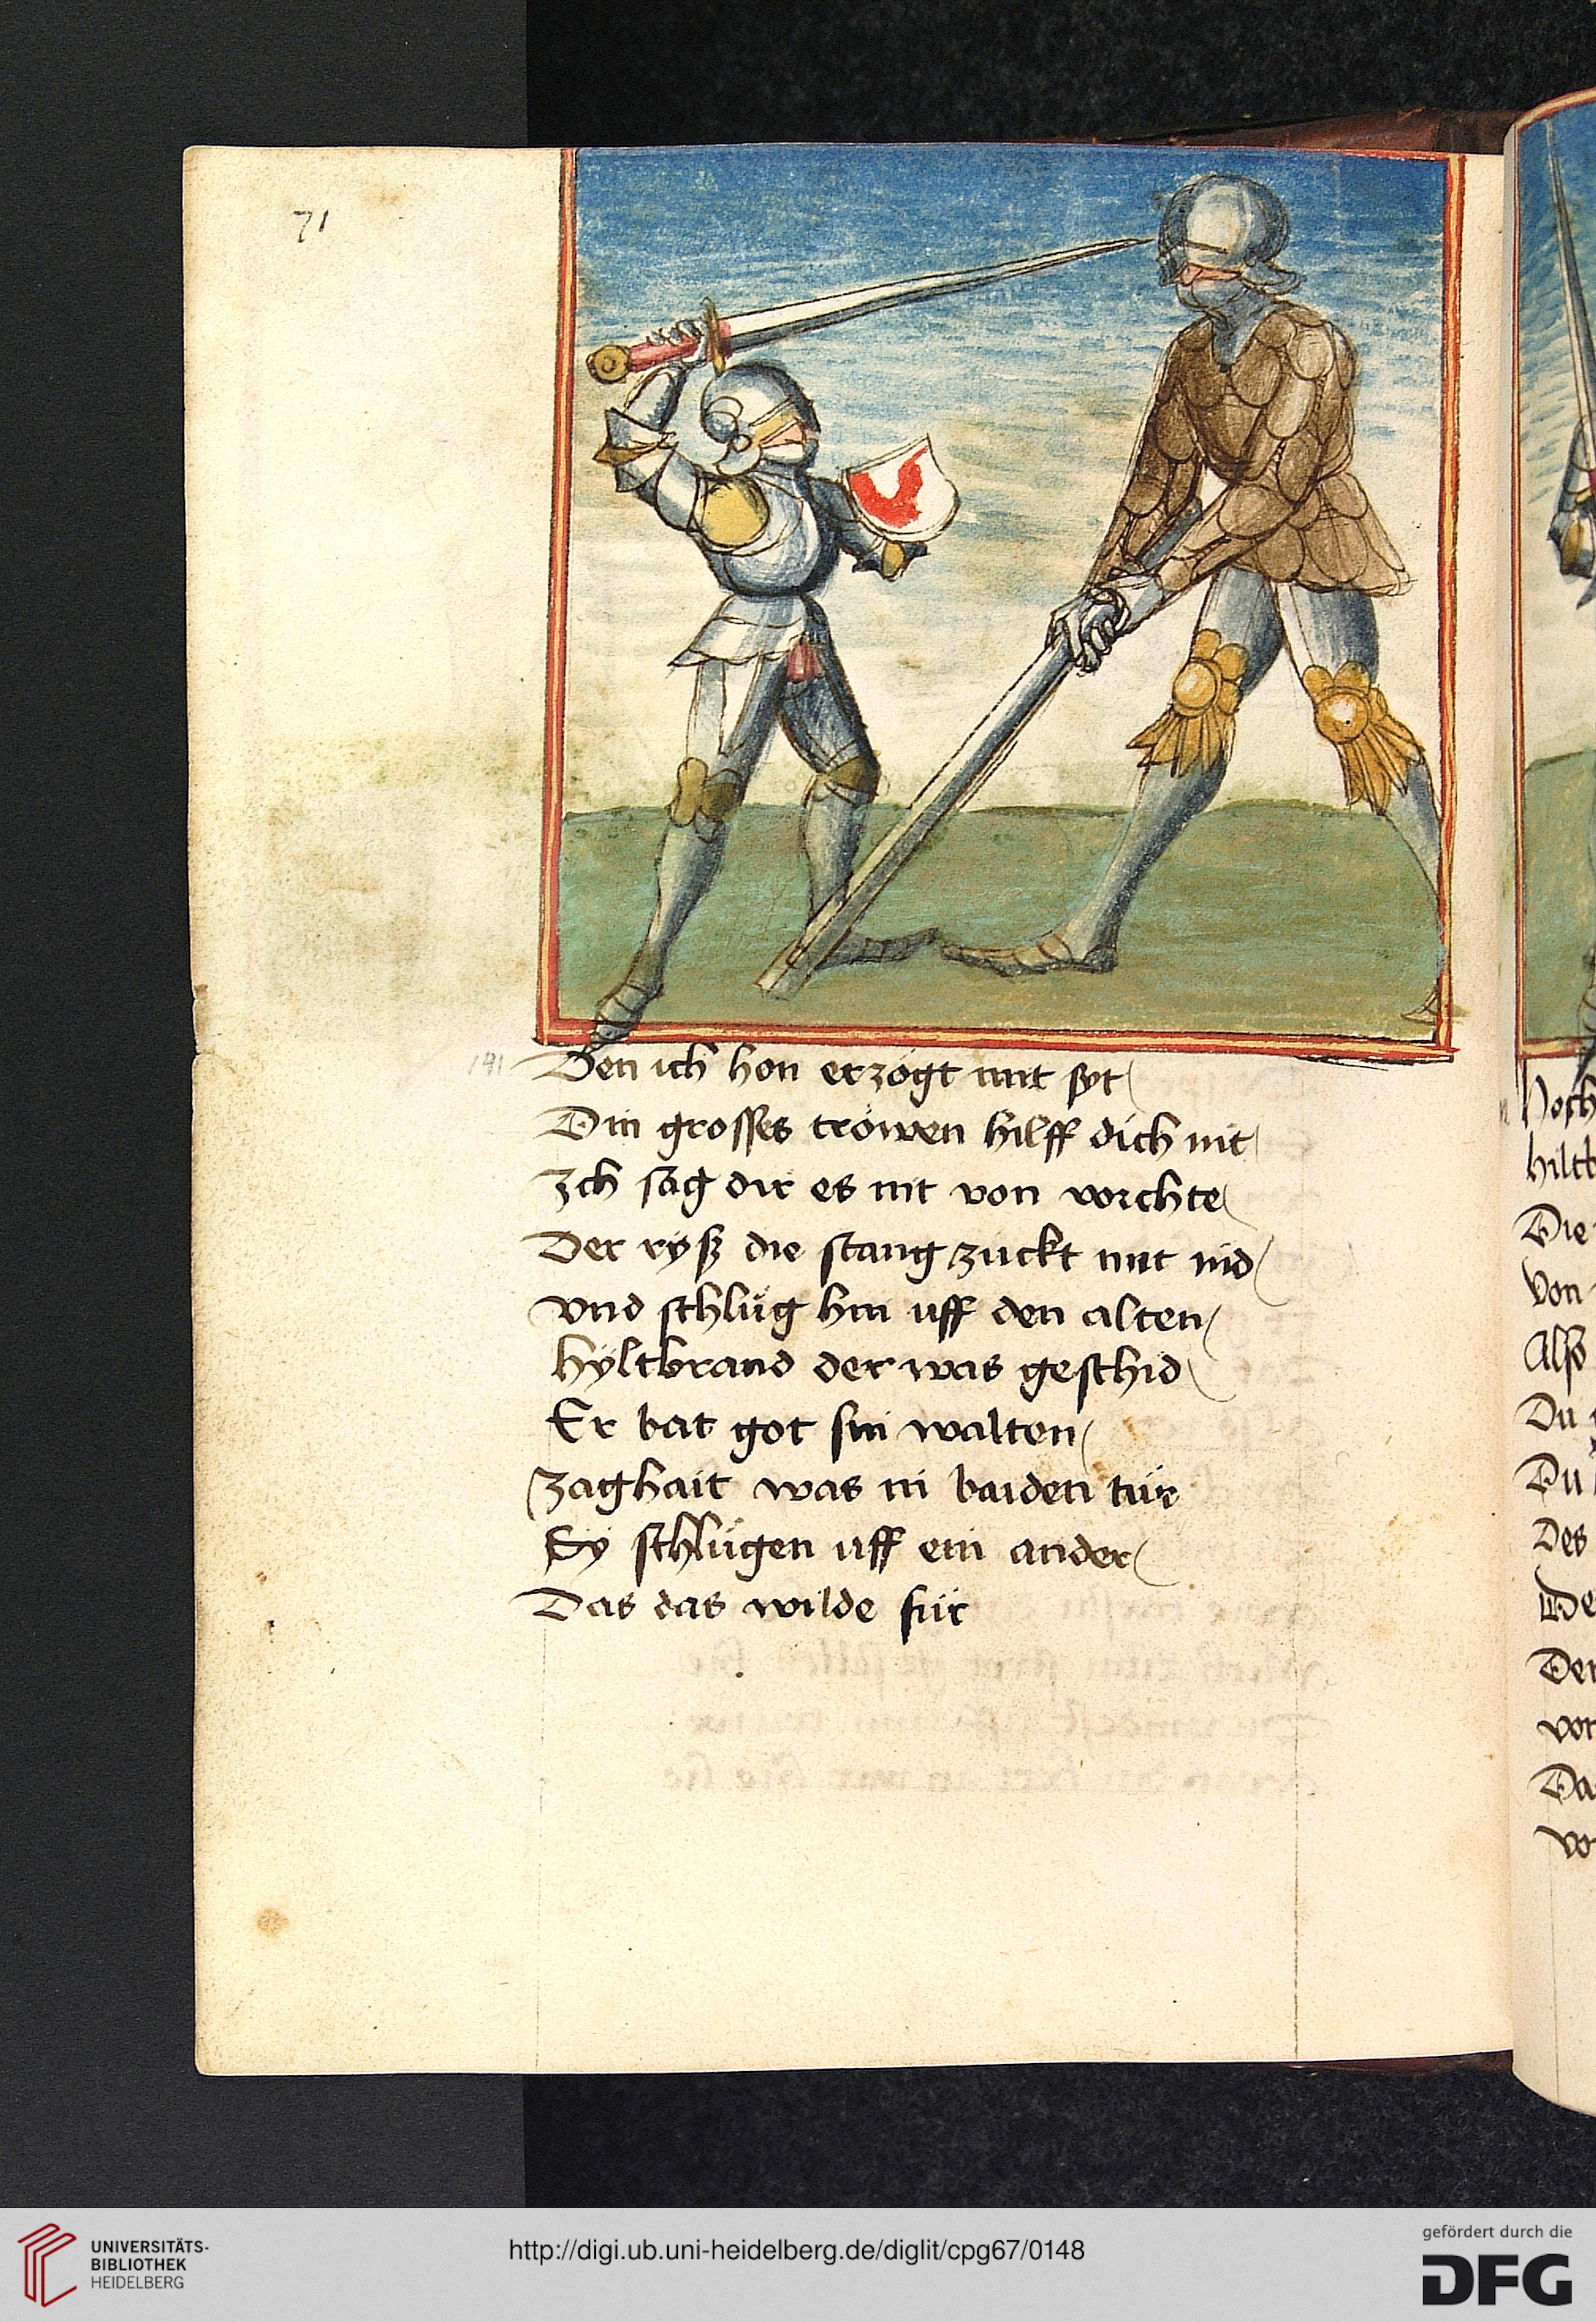 71
191
Den ich hon erzögt mit syt
Din grosses tröwen hilff dich nit
Ich sag dir es nit von vorchte
Der ryß die stang zuckt mit nid
vnd schlůg hin uff den alten
hyltbrand der was geschid
Er bat got sin walten
Zaghait was in baiden túr
Sy schlůgen uff ein ander
Das das wilde fúr
Hoch
hiltb
Die
Von
Also
Du
Du
Des
De
Der
vor
Da
vo
UNIVERSITÄTS-
BIBLIOTHEK
HEIDELBERG
http://digi.ub.uni-heidelberg.de/diglit/cpg67/0148
gefördert durch die
DFG